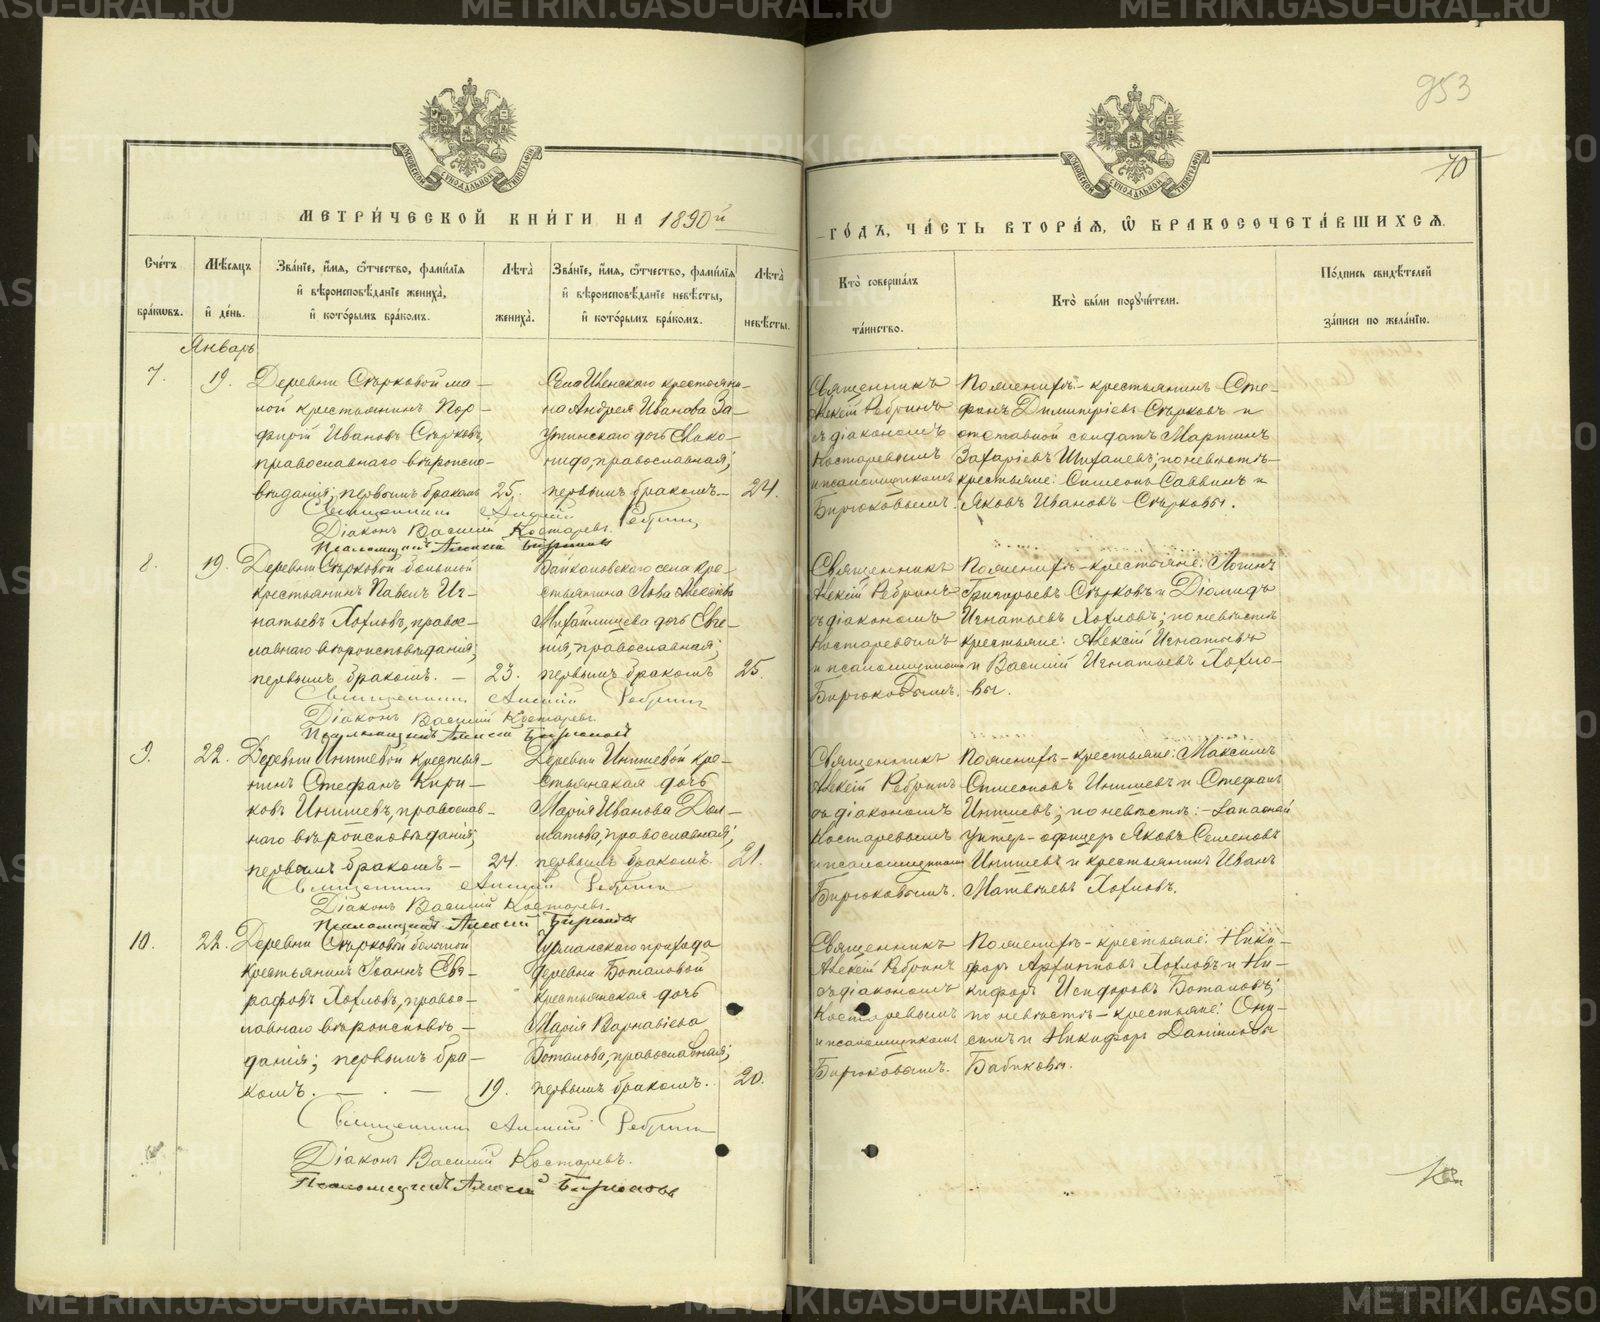 METRIKI.GASU-URAL.RU
953
70
МОСКОВСКОЙ СѴНОДАЛЬНОЙ ТИПОГРАФІИ
МЕТРИ́ЧЕСКОЙ КНИ́ГИ НА 1890й
ГО́ДЪ, ЧА́СТЬ ВТОРА́Я, Ѿ БРАКОСОЧЕТА́ВШИХСЯ.
Сче́тъ бра́кѡвъ.
Мѣ́сяцъ и҆ де́нь.
Зва́нїе, и҆́мя, ѻ҆́тчество, фами́лїя
и҆ вѣроисповѣ́данїе жениха̀,
и҆ кото́рымъ бра́комъ.
Лѣ́та жениха̀.
Зва́нїе, и҆́мя, ѻ҆́тчество, фами́лїя
и҆ вѣроисповѣ́данїе невѣ́сты,
и҆ кото́рымъ бра́комъ.
Лѣ́та невѣ́сты.
Кто̀ соверша́лъ
та́инство.
Кто̀ бы́ли поручи́тели.
По́дпись свидѣ́телей
за́писи по жела́нїю.
Январь
7. 19.
Деревни Сырковой ма-
лой крестьянинъ Пор-
фирій Ивановъ Сырковъ,
православнаго вѣроиспо-
вѣданія; первымъ бракомъ 25.
крестьяни-
на Андрея Иванова За-
дочь
православная;
первымъ бракомъ. 24.
Священникъ
Алексій Ребринъ
съ діакономъ
Костаревымъ
и псаломщикомъ
Бирюковымъ.
По женихѣ - крестьянинъ Сте-
фанъ Димитріевъ Сырковъ и
отставной солдатъ Мартинъ
Захаріевъ по невѣстѣ -
крестьяне: Симеонъ Саввинъ и
Яковъ Ивановъ Сырковы.
Священникъ Алексій Ребринъ
Діаконъ Василій Костаревъ.
Псаломщикъ Алексій Бирюковъ
8. 19.
Деревни Сырковой большой
крестьянинъ Павелъ Иг-
натьевъ Хохловъ, правос-
лавнаго вѣроисповѣданія;
первымъ бракомъ. - 23.
села кре-
стьянина Льва Алексѣева
Михайлищева дочь Евге-
нія, православная;
первымъ бракомъ 25.
Священникъ
Алексій Ребринъ
съ діакономъ
Костаревымъ
и псаломщикомъ
Бирюковымъ.
По женихѣ - крестьяне: Логинъ
Григорьевъ Сырковъ и Діомидъ
Игнатьевъ Хохловъ; по невѣстѣ
крестьяне: Алексій Игнатьевъ
и Василій Игнатьевъ Хохло-
вы.
Священникъ Алексій Ребринъ
Діаконъ Василій Костаревъ.
Псаломщикъ Алексій Бирюковъ
9. 22.
Деревни Инишевой крестья-
нинъ Стефанъ Кири-
ковъ Инишевъ, православ-
наго вѣроисповѣданія;
первымъ бракомъ - 24.
Деревни Инишевой кре-
стьянская дочь
Марія Иванова Дол-
матова, православная;
первымъ бракомъ. 21.
Священникъ
Алексій Ребринъ
съ діакономъ
Костаревымъ
и псаломщикомъ
Бирюковымъ.
По женихѣ - крестьяне: Максимъ
Симеоновъ Инишевъ и Стефанъ
Инишевъ; по невѣстѣ: - запасной
унтеръ-офицеръ Яковъ Семеновъ
Инишевъ и крестьянинъ Иванъ
Матвѣевъ Хохловъ.
Священникъ Алексій Ребринъ
Діаконъ Василій Костаревъ.
Псаломщикъ Алексій Бирюковъ
10. 22.
Деревни Сырковой большой
крестьянинъ Іоаннъ Евг-
рафовъ Хохловъ, правос-
лавнаго вѣроисповѣ-
данія; первымъ бра-
комъ. - 19.
прихода
деревни Боталовой
крестьянская дочь
Марія Варнавіева
Боталова, православная;
первымъ бракомъ. 20.
Священникъ
Алексій Ребринъ
съ діакономъ
Костаревымъ
и псаломщикомъ
Бирюковымъ.
По женихѣ - крестьяне: Ники-
форъ Архиповъ Хохловъ и Ни-
кифоръ Исидоровъ Боталовъ;
по невѣстѣ - крестьяне: Они-
симъ и Никифоръ Даніиловы
Бабиковы.
Священникъ Алексій Ребринъ
Діаконъ Василій Костаревъ.
Псаломщикъ Алексій Бирюковъ